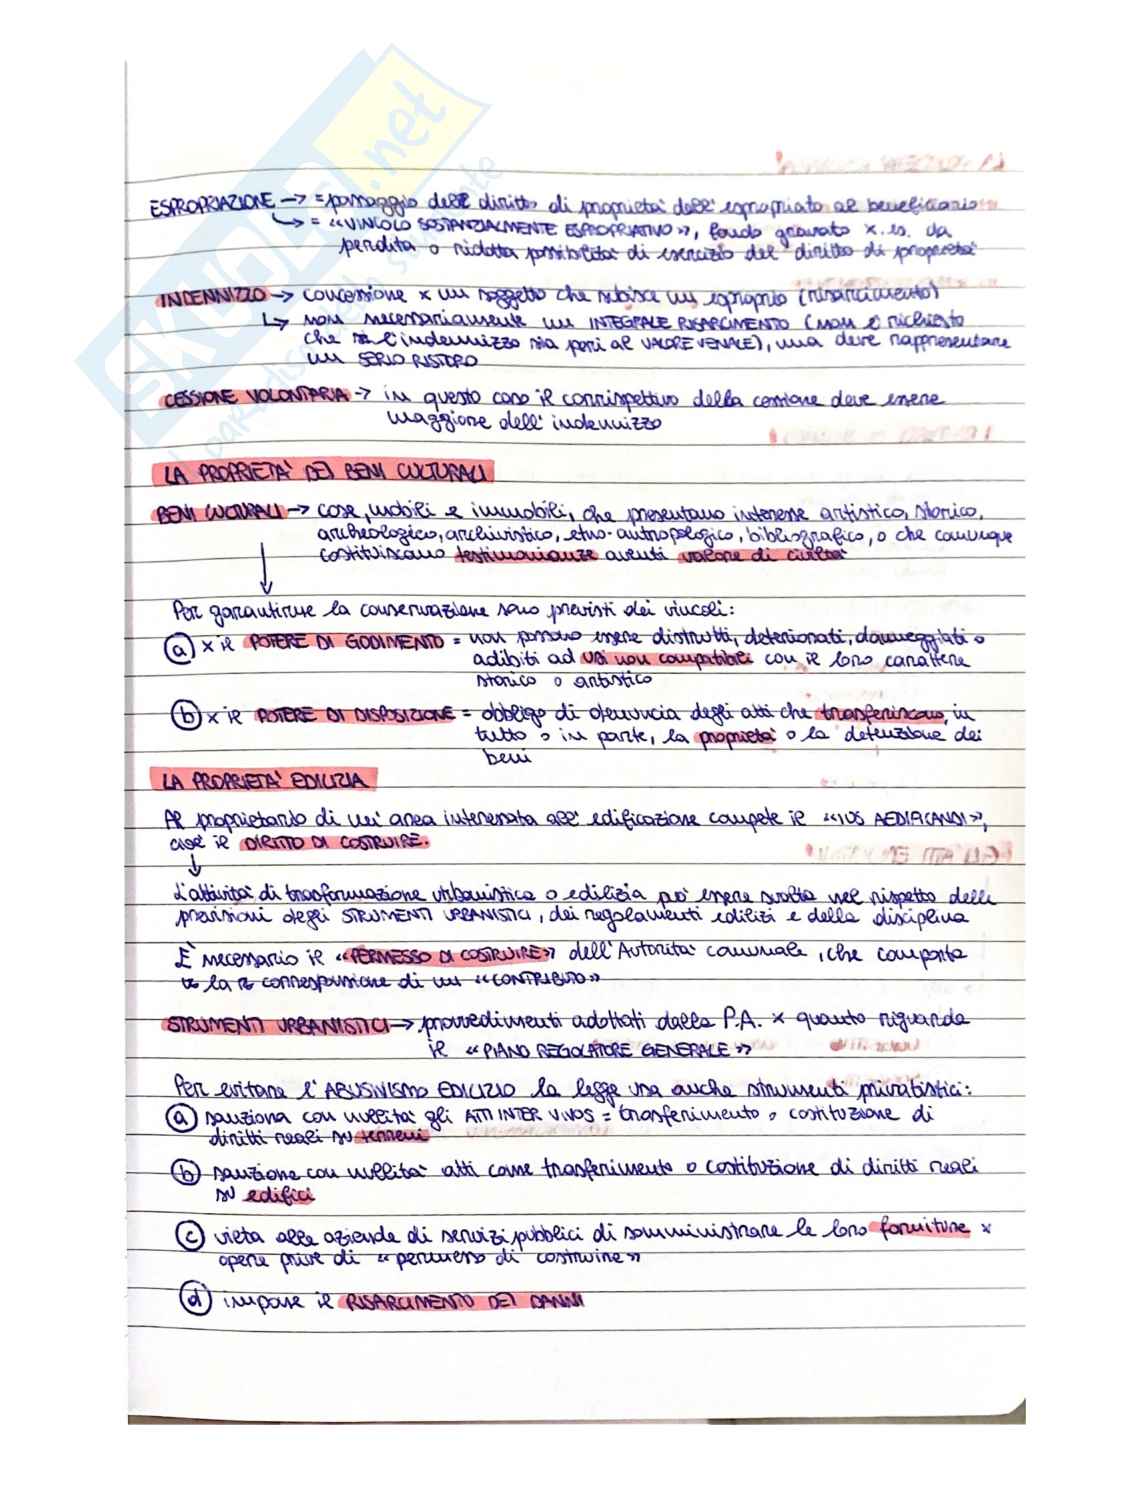 SKUOLA.net
ESPROPRIAZIONE → = passaggio dell diritto di proprietà dall'espropriato al beneficiario
↳ = "VINCOLO SOSTANZIALMENTE ESPROPRIATIVO", fondo gravato x es. da
perdita o ridotta possibilità di esercizio del diritto di proprietà
INDENNIZZO → concessione x un soggetto che subisce un esproprio (risarcimento)
↳ non necessariamente un INTEGRALE RISARCIMENTO (non è richiesto
che l'indennizzo sia pari al VALORE VENALE), ma deve rappresentare
un SERIO RISTORO
CESSIONE VOLONTARIA → in questo caso il corrispettivo della cessione deve essere
maggiore dell'indennizzo
LA PROPRIETÀ DEI BENI CULTURALI
BENI CULTURALI → cose, mobili e immobili, che presentano interesse artistico, storico,
archeologico, archivistico, etno-antropologico, bibliografico, o che comunque
costituiscano testimonianze aventi valore di civiltà
↓
Per garantirne la conservazione sono previsti dei vincoli:
ⓐ x il POTERE DI GODIMENTO = non possono essere distrutti, deteriorati, danneggiati o
adibiti ad usi non compatibili con il loro carattere
storico o artistico
ⓑ x il POTERE DI DISPOSIZIONE = obbligo di denuncia degli atti che trasferiscono, in
tutto o in parte, la proprietà o la detenzione dei
beni
LA PROPRIETÀ EDILIZIA
Al proprietario di un'area interessata all'edificazione compete il "IUS AEDIFICANDI",
cioè il DIRITTO DI COSTRUIRE.
↓
L'attività di trasformazione urbanistica o edilizia può essere svolta nel rispetto delle
previsioni degli STRUMENTI URBANISTICI, dei regolamenti edilizi e della disciplina
È necessario il "PERMESSO DI COSTRUIRE" dell'Autorità comunale, che comporta
la corresponsione di un "CONTRIBUTO"
STRUMENTI URBANISTICI → provvedimenti adottati dalla P.A. x quanto riguarda
il "PIANO REGOLATORE GENERALE"
Per evitare l'ABUSIVISMO EDILIZIO la legge usa anche strumenti privatistici:
ⓐ sanziona con nullità gli ATTI INTER VIVOS = trasferimento o costituzione di
diritti reali su terreni
ⓑ sanzione con nullità atti come trasferimento o costituzione di diritti reali
su edifici
ⓒ vieta alle aziende di servizi pubblici di somministrare le loro forniture x
opere prive di "permesso di costruire"
ⓓ impone il RISARCIMENTO DEI DANNI